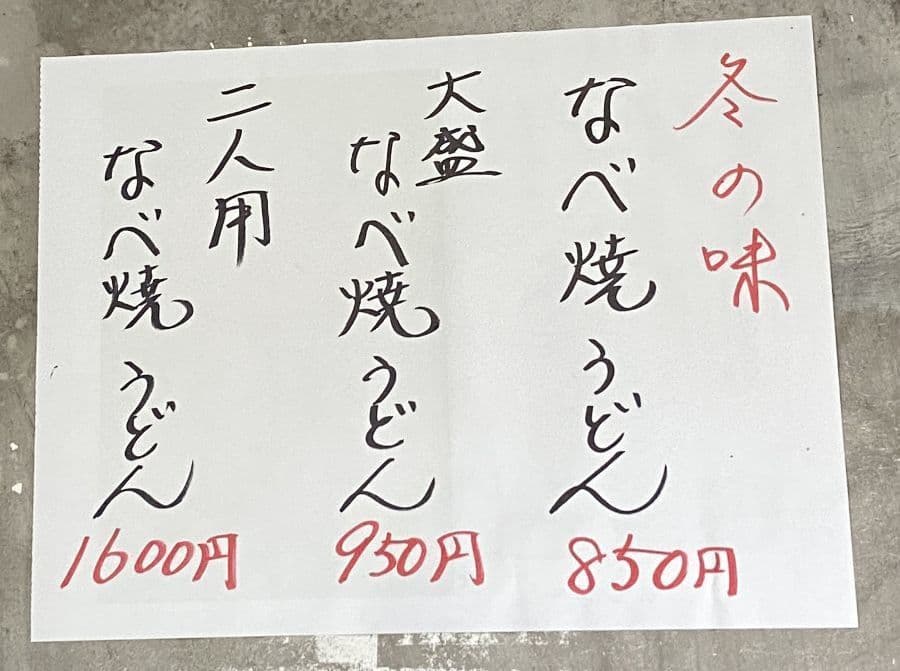 冬の味
なべ焼うどん
850円
大盛
なべ焼うどん
950円
二人用
なべ焼うどん
1600円